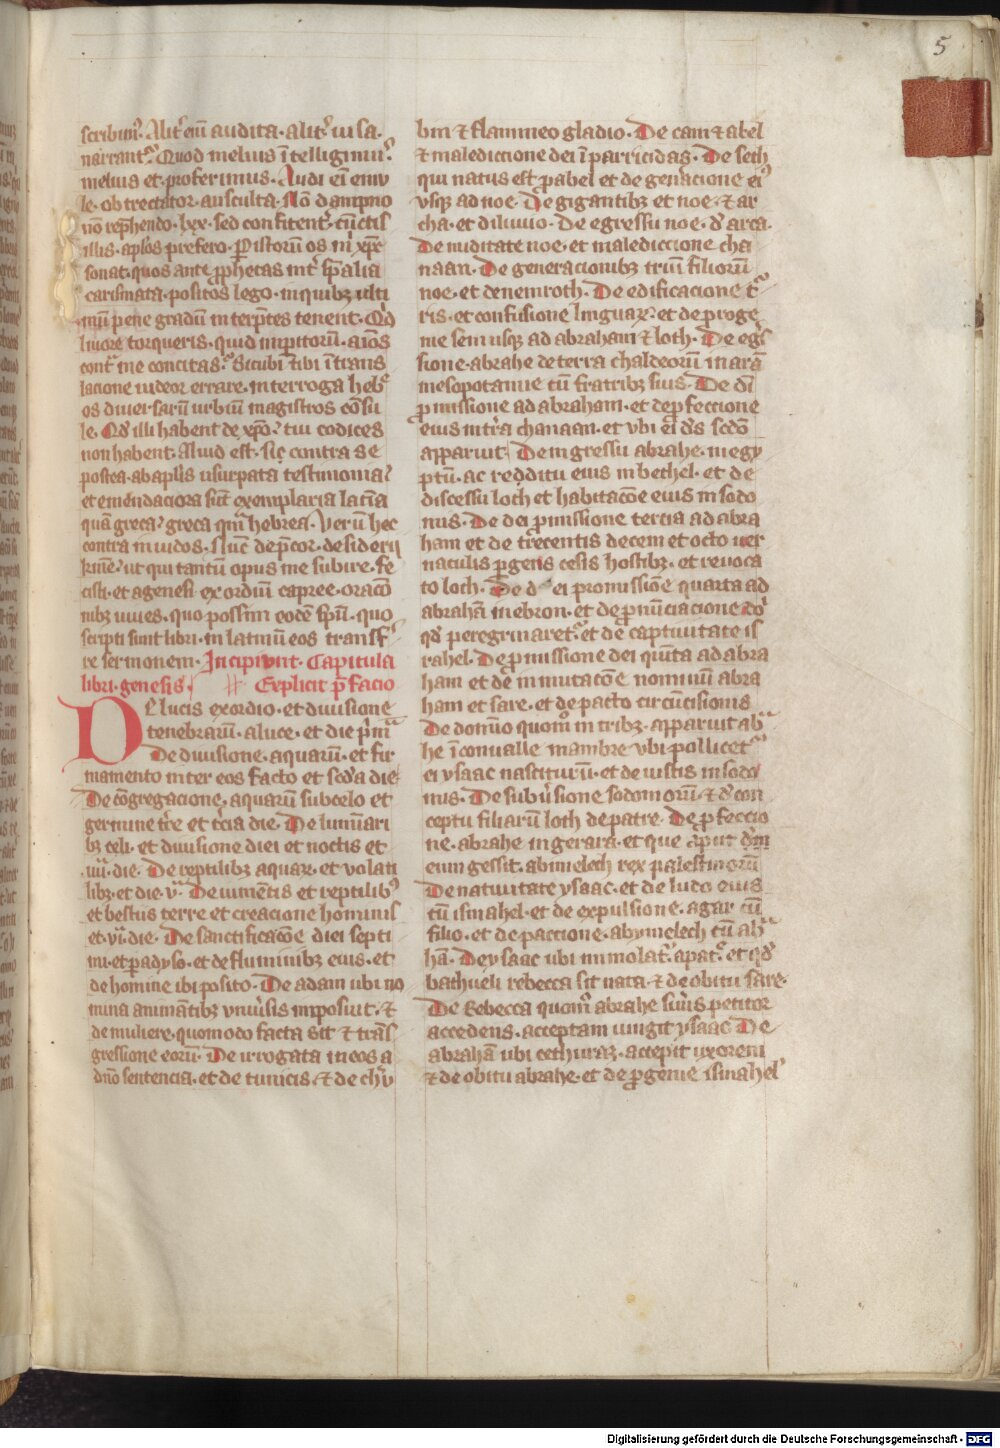 5
scribunt᷑. Alit᷑ eni᷑ audita. alit᷑ visa.
narrant᷑. Quod melius ītelligimus.
melius et proferimus. Audi eī emu
le. obtrectator ausculta. Nō dampno
nō rep̄hendo. lxx. sed confitent᷑. cūctis
illis. aplōs prefero. P istorū os m̄ xp̄c
sonat. quos ante p̄phetas int᷑ sp̄alia
carismata. positos lego. in quibꝫ ulti
mū pene gradū interp̄tes tenent. Qd̄
livore torqueris. quid inp̄itorū. aīos
cont᷑ me concitas. Sicubi tibi ītrans
lacione videor errare. interroga heb᷑
os diversarū urbiū magistros cōsu
le. Qd̄ illi habent de xp̄o. tui codices
non habent. Aliud est. sic contra se
postea. ab aplīs usurpata testimonia.
et emendaciora sūt exemplaria latīa
quā greca. greca qm̄ hebrea. Verū hec
contra invidos. Nūc dep̄cor. desiderij
krīe. ut qui tantū opus me subire. fe
cisti. et agenesi exordiū capere. oracō
nibꝫ iuves. quo possim eodē spū. quo
scripti sunt libri. in latinū eos transfer
re sermonem. Incipiunt. Capitula
libri. genesis. Explicit p̄facio
De lucis exordio. et divisione
tenebrarū. a luce. et die p̄ma
De divisione. aquarū. et fir
mamento inter eos facto et scd̄a die
De cōgregacione, aquarū sub celo et
germine tr̄e et t᷑cia die. De luminari
bꝫ celi. et divisione diei et noctis et
.iiij. die. De reptilibꝫ aquaꝝ. et volati
libꝫ. et die. v. De iumētis et reptilibꝫ
et bestiis terre et creacione hominis
et. vj. die. De sanctificacōe diei septi
mi. et paradyso. et de fluminibꝫ eius. et
de homine ibi posito. De adam ubi no
mina animātibꝫ univ᷑sis imposuit. et
de muliere. quomodo facta sit et trās
gressione eorū. De irrogata in eos a
dn̄o sentencia. et de tunicis et de chru
bin et flammeo gladio. De cam et abel
et malediccione dei ī parricidas. De seth
qui natus est p̄ abel et de gen᷑acione ei᷒
usqꝫ ad noe. De gigantibꝫ et noe. et ar
cha. et diluvio. De egressu noe. d᷑ arca.
De nuditate noe. et malediccione cha
naan. De generacionibꝫ triū filiorū
noe. et de nemroth. De edificacione tur
ris. et confusione linguaꝝ. et de proge
nie sem usqꝫ ad abraham et loth. De egres
sione. abrahe de terra chaldeorū in arā
mesopotamie cū fratribꝫ suis. De dī
p̄missione ad abraham. et de p̄feccione
eius in tr̄a chanaan. et ubi ei dn̄s scd̄o
apparuit. De ingressu abrahe. in egy
ptū. ac redditu eius in bethel. et de
discessu loth et habitacōe eius in sodo
mis. De dei p̄missione tercia ad abra
ham et de trecentis decem et octo ver
naculis p̄ geris cesis hostibꝫ. et revoca
to loth. De dei promissiōe quarta ad
abrahā in ebron. et de p̄nūciacione
qd̄ peregrinaret᷑. et de captivitate is
rahel. De p̄missione dei quīta ad abra
ham et de inmutacōe nominū abra
ham et sare. et de pacto circūcisionis
De domino quom̄ in tribꝫ. apparuit abra
he ī convalle mambre ubi pollicet᷑
ei ysaac nasciturū. et de iustis in sodo
mis. De subv᷑sione sodomorū. et d᷑ con
ceptu filiarū loth de patre. De p̄feccio
ne. abrahe in gerara. et que apud
eum gessit. abimelech rex palestinorū
De nativitate ysaac. et de ludo eius
cū ismahel. et de expulsione. agar cū
filio. et de paccione. abymelech cū abra
hā. De ysaac ubi immolat᷑. a pat᷑. et qd̄
bathueli rebecca sit nata. et de obitu sare.
De Rebecca quom̄ abrahe s᷑vus petitor
accedens. acceptam iungit ysaac De
abrahā ubi cethuraꝫ. accepit uxorem
et de obitu abrahe. et de p̄genie ismahel
Digitalisierung gefördert durch die Deutsche Forschungsgemeinschaft - DFG